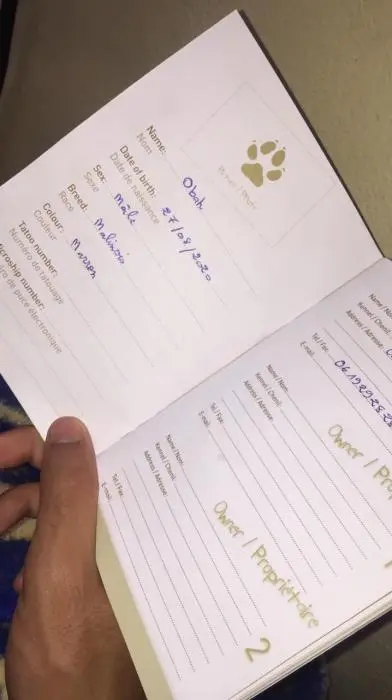 Picture / Photo
Name: Oboh
Nom
Date of birth: 27/08/2020
Date de naissance
Sex: Mâle
Sexe
Breed: Malinois
Race
Colour: Marron
Couleur
Tatoo number:
Numéro de tatouage
Microship number:
de puce électronique
Owner / Pro
Kennel / Chenil:
Address / Adresse:
Tel / Fax:
E-mail:
Owner / Propriétaire
2
Name / Nom:
Kennel / Chenil:
Address / Adresse:
Tel / Fax:
E-mail:
Name / Nom:
Kennel / Chenil:
Address / Adresse:
Tel / Fax:
E-mail: